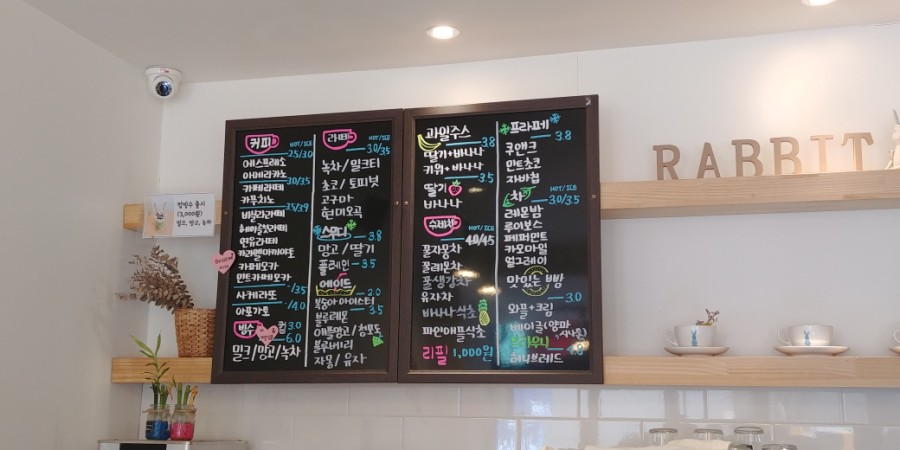 컵빙수 출시
(3,000원)
밀크, 망고, 녹차
커피
HOT/ICE
2.5/3.0
에스프레소
아메리카노
3.0/3.5
카페라떼
카푸치노
3.5/3.9
바닐라라떼
헤이즐넛라떼
연유라떼
카라멜마끼야또
카페모카
민트카페모카
-/3.5
샤케라또
-/4.0
아포가토
빙수
컵 3.0
6.0
밀크/망고/녹차
라떼
HOT/ICE
3.0/3.5
녹차/밀크티
초코/토피넛
고구마
현미오곡
스무디
3.8
망고/딸기
플레인
3.5
에이드
2.0
복숭아 아이스티
3.5
블루레몬
애플망고/청포도
블루베리
자몽/유자
과일주스
3.8
딸기+바나나
키위+바나나
3.5
딸기
바나나
수제차
HOT/ICE
4.0/4.5
꿀자몽차
꿀레몬차
꿀생강차
유자차
바나나식초
파인애플식초
리필 1,000원
프라페
3.8
쿠앤크
민트초코
자바칩
차
HOT/ICE
3.0/3.5
레몬밤
루이보스
페퍼민트
카모마일
얼그레이
맛있는 빵
3.0
와플+크림
베이글(양파,시나몬)
브라우니
허니브레드
RABBIT